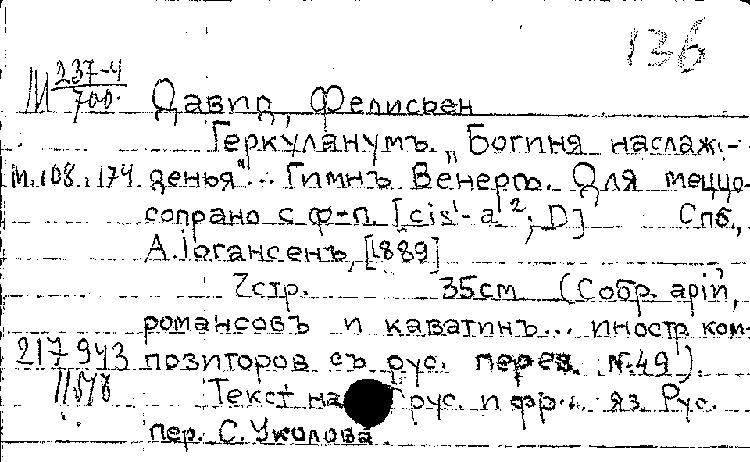 136
М 237-4/700. Давид, Фелисьен
Геркуланумъ. „Богиня наслаж-
М. 108. 174 денья"... Гимнъ Венерѣ. Для меццо-
сопрано с ф-п. [cis¹-a²; D] Спб.,
А. Іогансенъ, [1889]
7стр. 35см (Собр. арій,
романсовъ и каватинъ... иностр ком-
217943 позиторов съ рус. перев. №49).
Текст на рус. и фр. яз. Рус.
пер. С. Уколова.